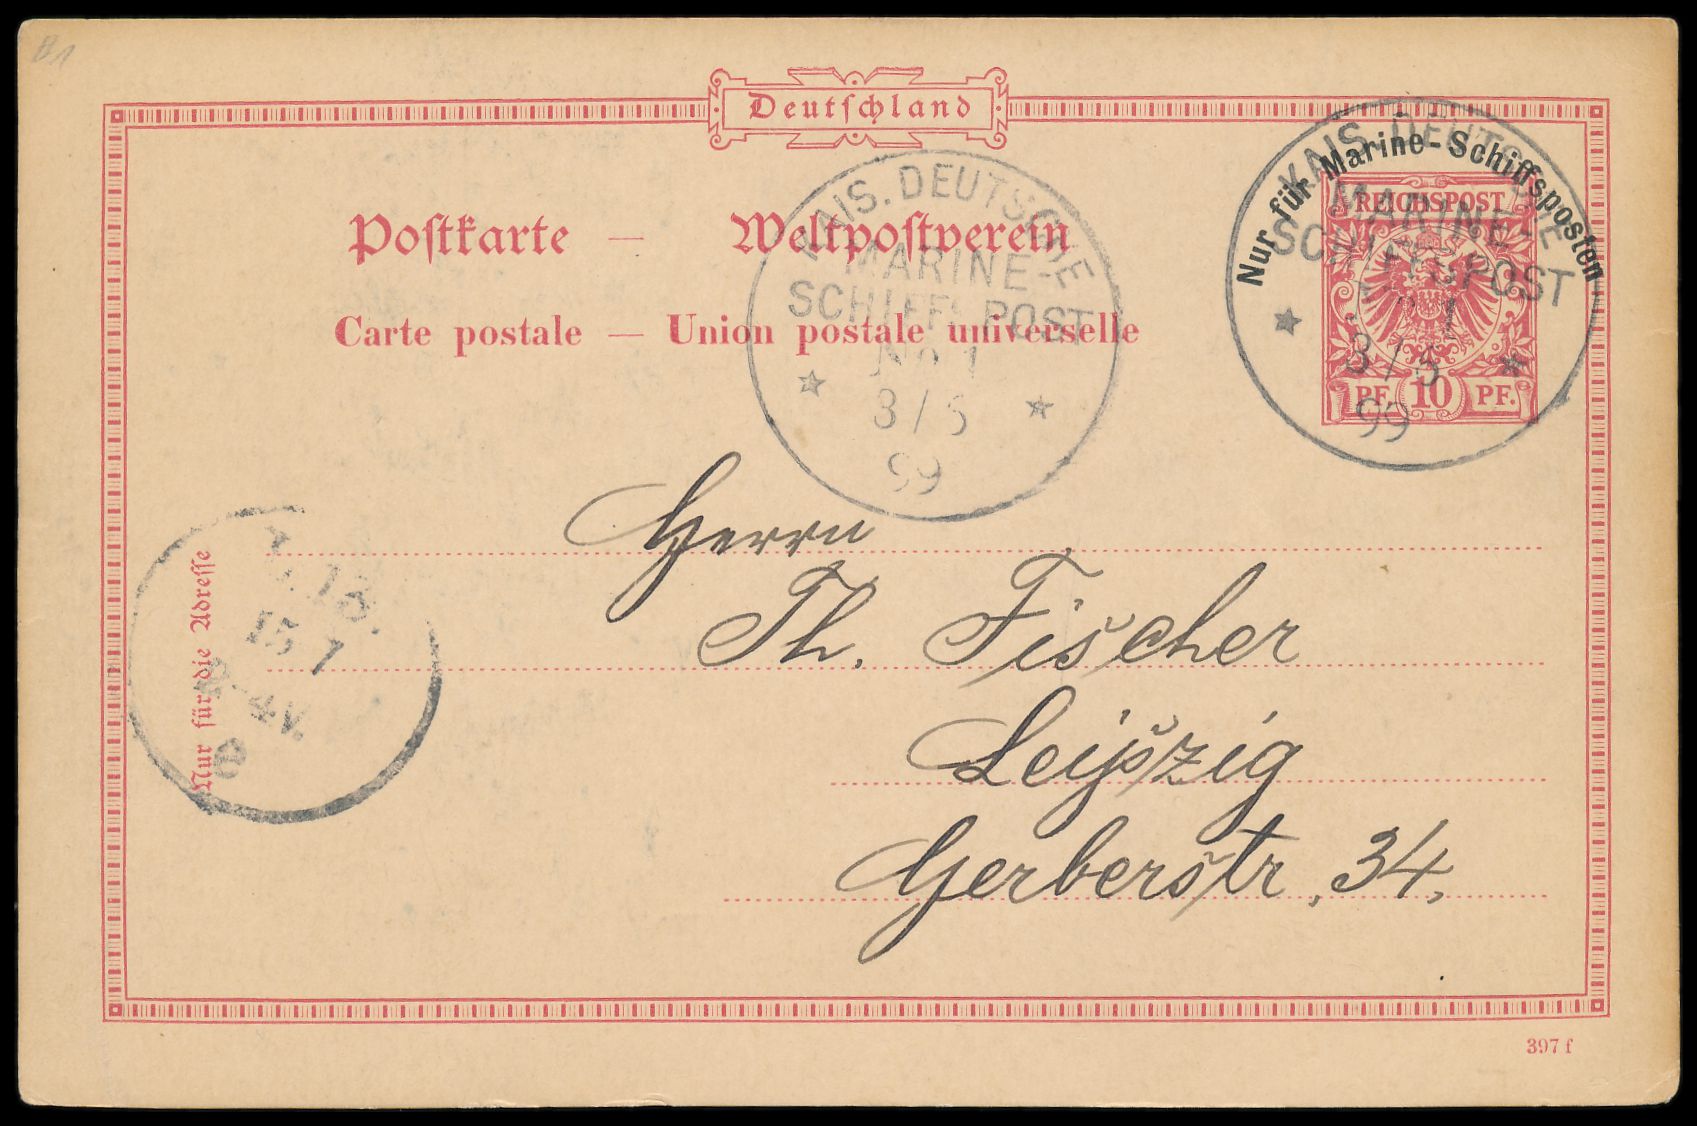 Deutschland
Nur für Marine-Schiffsposten
KAIS. DEUTSCHE
MARINE-
SCHIFFSPOST
1
3/5
99
REICHSPOST
PF. 10 PF.
Postkarte — Weltpostverein
Carte postale — Union postale universelle
KAIS. DEUTSCHE
MARINE-
SCHIFFSPOST
No 1
3/5
99
Nur für die Adresse
15 7
-4V.
Herrn
Th. Fischer
Leipzig
Gerberstr. 34.
397 f